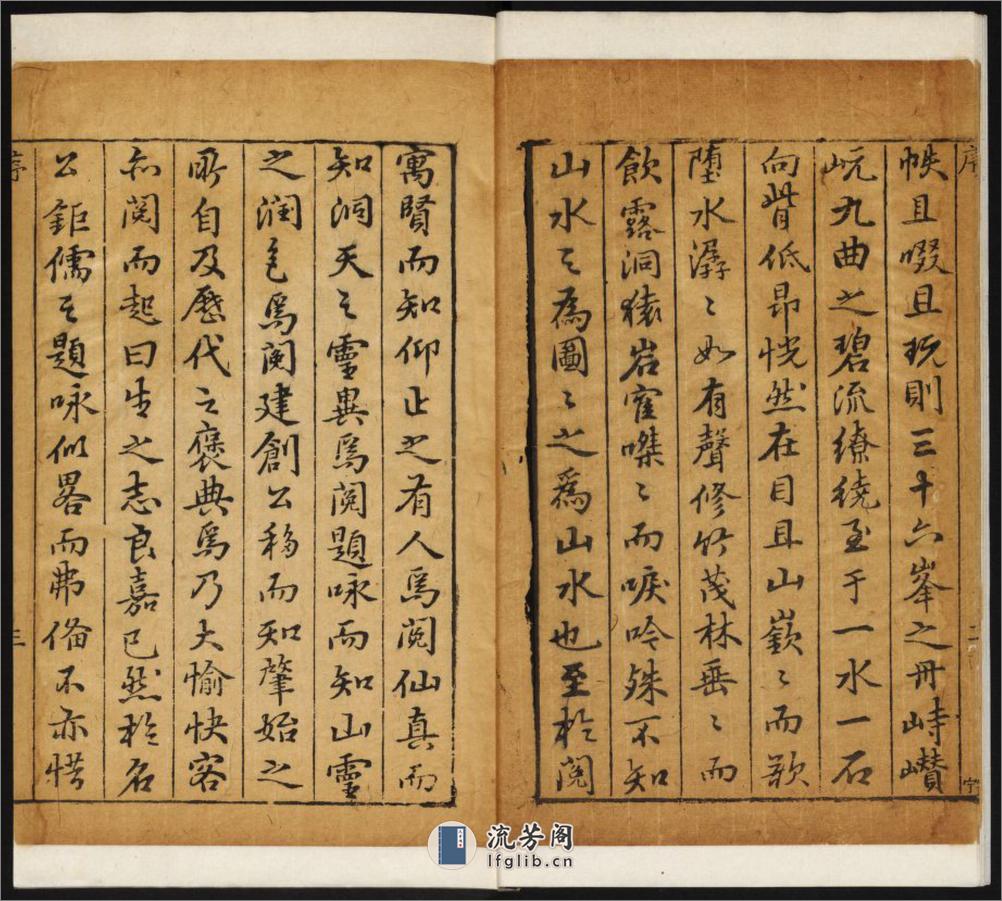 序 二
帙且啜且玩則三十六峯之丹峙巑
岏九曲之碧流繚繞至于一水一石
向背低昂恍然在目且山嶔〻而歌
堕水潺〻如有聲修竹茂林垂〻而
飲露洞猿岩隺嗥〻而唳吟殊不知
山水之為圖〻之爲山水也至於閱
寓賢而知仰止之有人焉閱仙真而
知洞天之靈異焉閱題咏而知山靈
之潤色焉閱建創公移而知肇始之
所自及歷代之褒典焉乃大愉快客
閱而起曰生之志良嘉已然於名
公鉅儒之題咏似畧而弗俻不亦惜
序 三
流芳阁
lfglib.cn